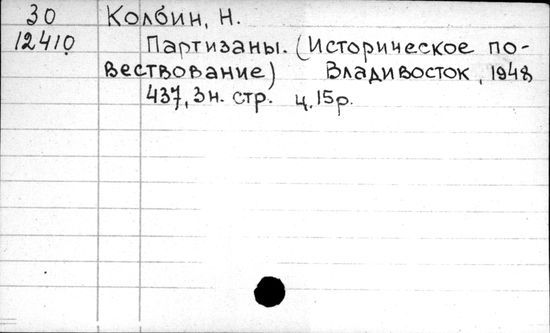 30 Колбин, Н.
12410 Партизаны. (Историческое по-
вествование) Владивосток, 1948
437, 3 н. стр. ц. 15 р.